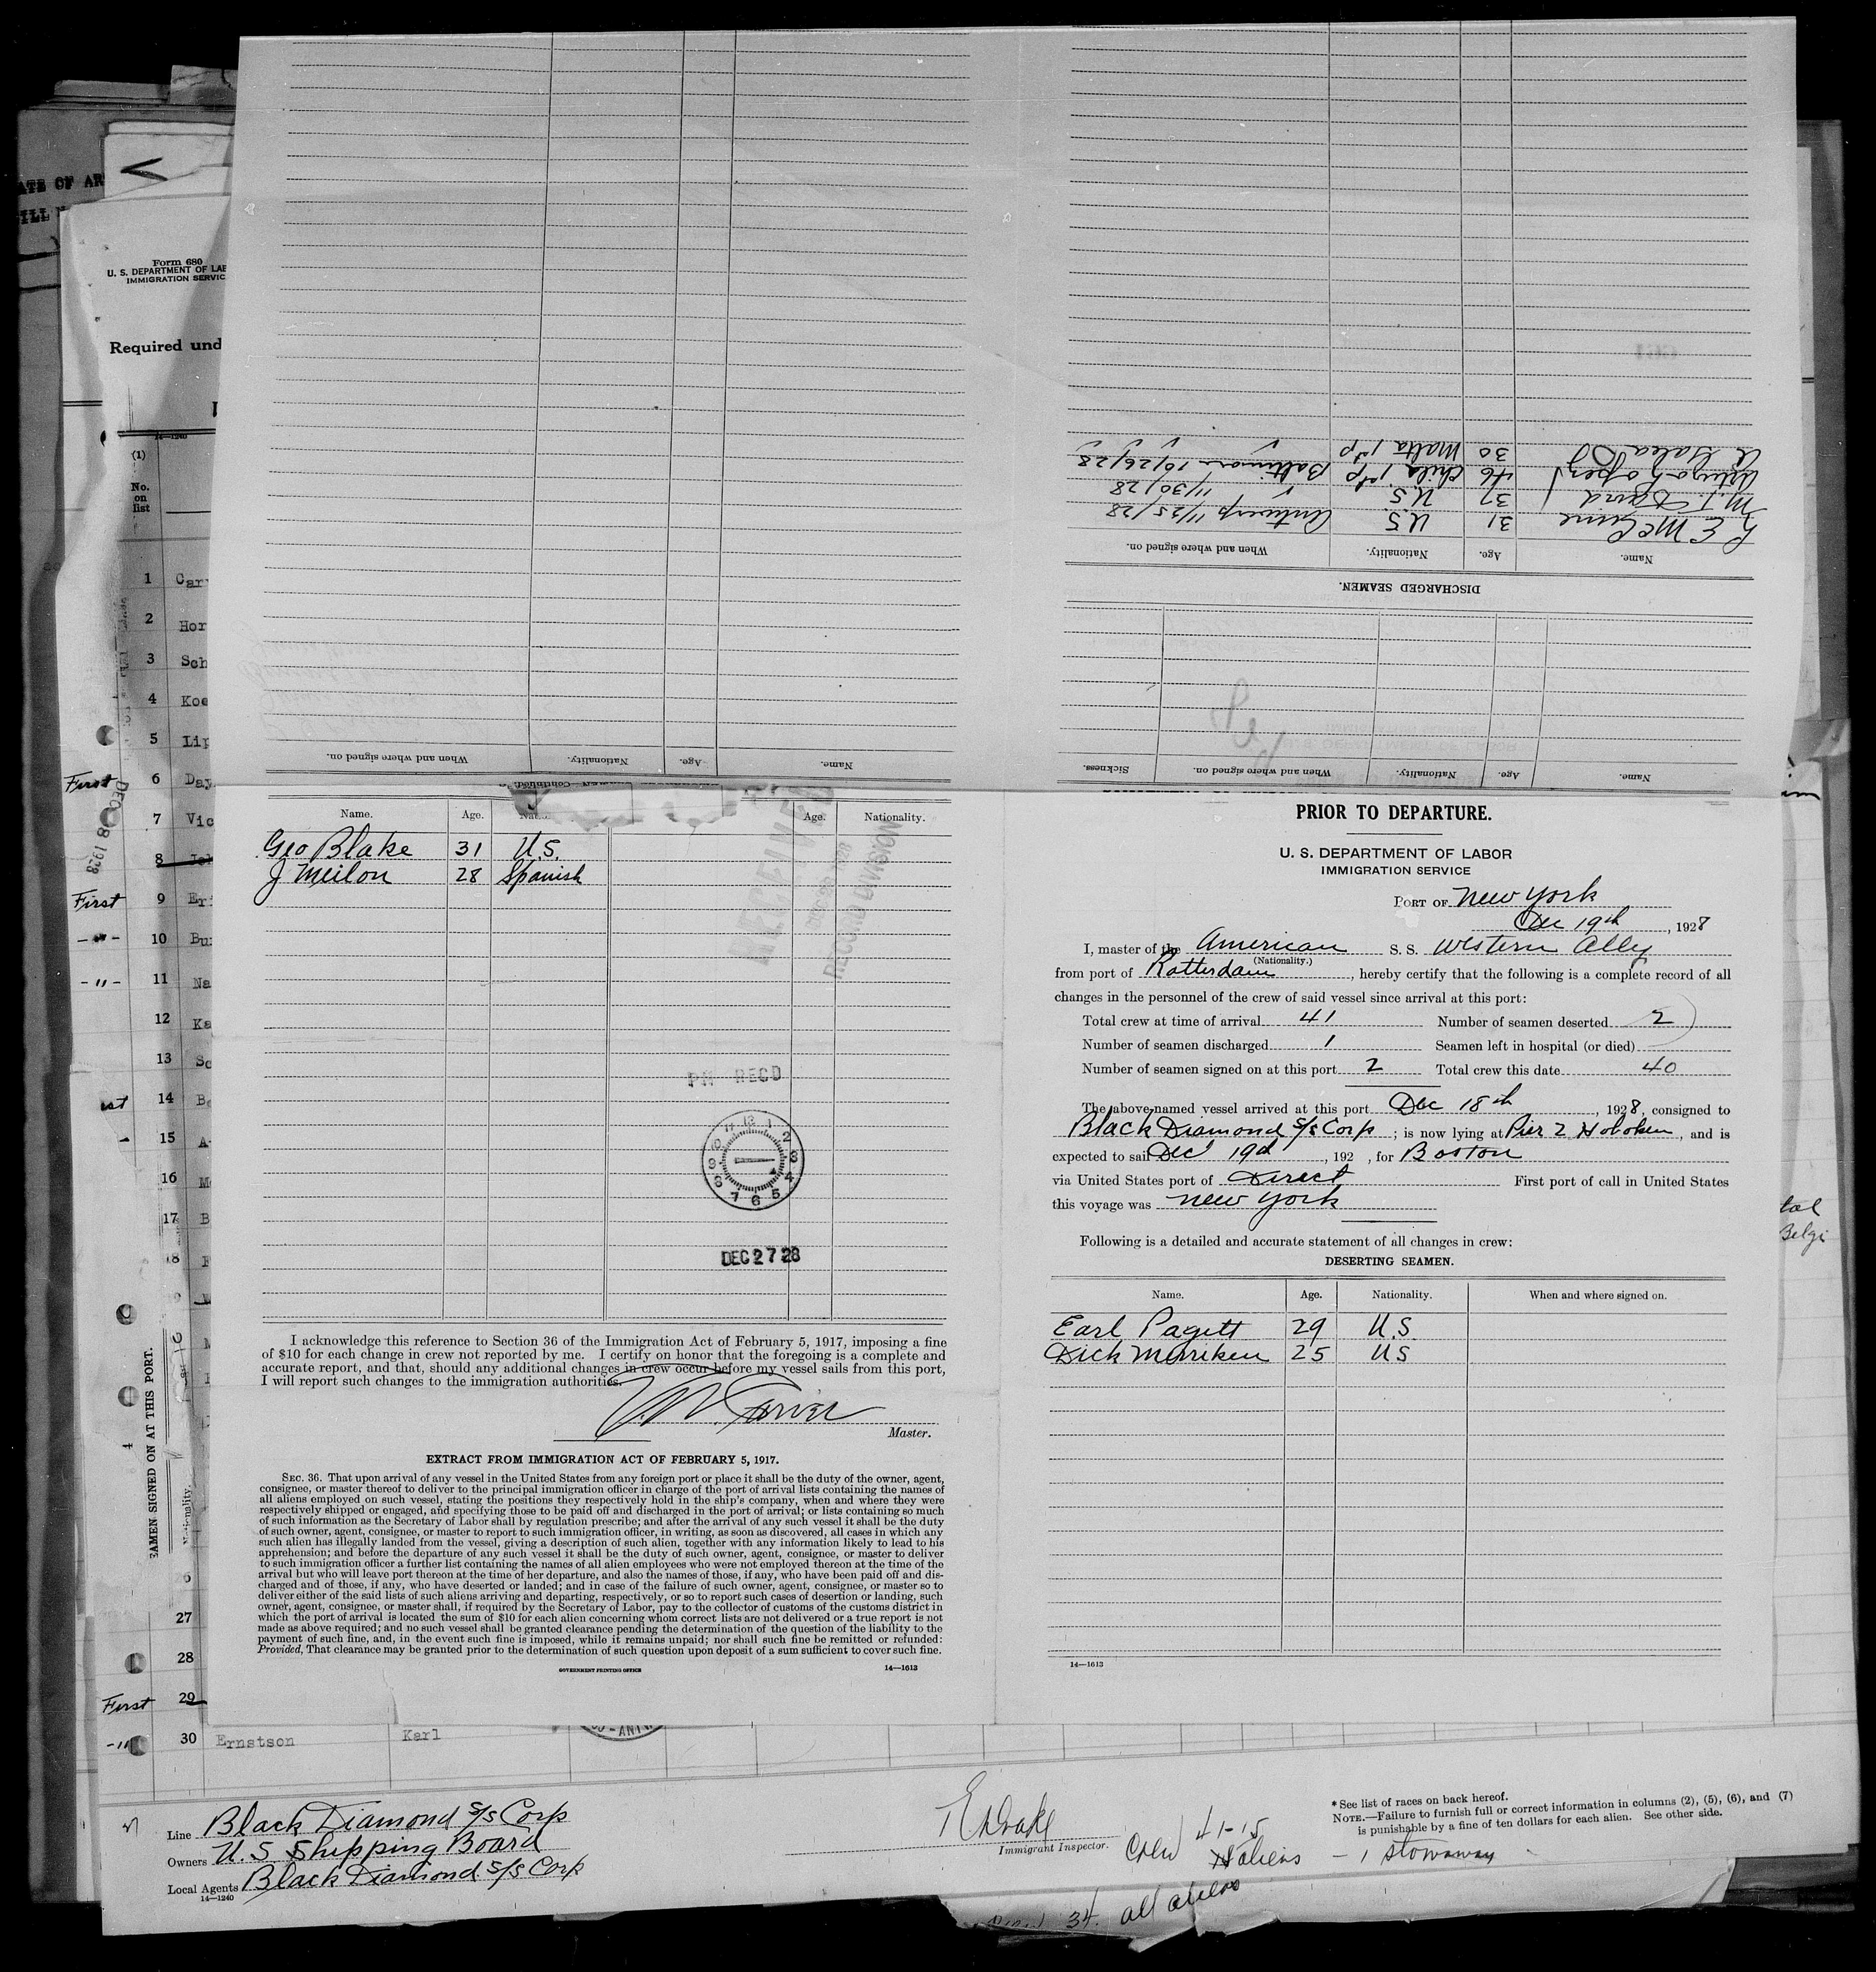 ATE OF AR
ILL
Form 680
U. S. DEPARTMENT OF LAB
IMMIGRATION SERVIC
Required und
14—1240
(1)
No.
on
list
1 Car
2 Hor
3 Sch
4 Koe
5 Lip
First 6 Day
7 Vic
8
First 9 Eri
-"- 10 Bur
-"- 11 Na
12 Ka
13 Sc
14 Be
15 A
16 M
17 B
18
27
28
First 29
-"- 30 Ernstson Karl
DEC 18 1928
SEAMEN SIGNED ON AT THIS PORT.
DISCHARGED SEAMEN.
Name. Age. Nationality. When and where signed on.
E McGuire 31 U.S. Antwerp 11/25/28
M. J. David 37 U.S. " 11/30/28
Arturo Lopez 46 Chile 1st p Baltimore 10/26/28
Galea 30 Malta 1st p " "
Name. Age. Nationality. When and where signed on. Sickness.
Name. Age. Nationality. When and where signed on.
Name. Age. Nat Age. Nationality.
Geo Blake 31 U.S.
J Meilon 28 Spanish
RECEIVED
RECORD DIVISION
PM RECD
12 1 2 3 4 5 6 7 8 9 10 11
DEC 27 28
I acknowledge this reference to Section 36 of the Immigration Act of February 5, 1917, imposing a fine
of $10 for each change in crew not reported by me. I certify on honor that the foregoing is a complete and
accurate report, and that, should any additional changes in crew occur before my vessel sails from this port,
I will report such changes to the immigration authorities.
Master.
EXTRACT FROM IMMIGRATION ACT OF FEBRUARY 5, 1917.
SEC. 36. That upon arrival of any vessel in the United States from any foreign port or place it shall be the duty of the owner, agent,
consignee, or master thereof to deliver to the principal immigration officer in charge of the port of arrival lists containing the names of
all aliens employed on such vessel, stating the positions they respectively hold in the ship's company, when and where they were
respectively shipped or engaged, and specifying those to be paid off and discharged in the port of arrival; or lists containing so much
of such information as the Secretary of Labor shall by regulation prescribe; and after the arrival of any such vessel it shall be the duty
of such owner, agent, consignee, or master to report to such immigration officer, in writing, as soon as discovered, all cases in which any
such alien has illegally landed from the vessel, giving a description of such alien, together with any information likely to lead to his
apprehension; and before the departure of any such vessel it shall be the duty of such owner, agent, consignee, or master to deliver
to such immigration officer a further list containing the names of all alien employees who were not employed thereon at the time of the
arrival but who will leave port thereon at the time of her departure, and also the names of those, if any, who have been paid off and dis-
charged and of those, if any, who have deserted or landed; and in case of the failure of such owner, agent, consignee, or master so to
deliver either of the said lists of such aliens arriving and departing, respectively, or so to report such cases of desertion or landing, such
owner, agent, consignee, or master shall, if required by the Secretary of Labor, pay to the collector of customs of the customs district in
which the port of arrival is located the sum of $10 for each alien concerning whom correct lists are not delivered or a true report is not
made as above required; and no such vessel shall be granted clearance pending the determination of the question of the liability to the
payment of such fine, and, in the event such fine is imposed, while it remains unpaid; nor shall such fine be remitted or refunded:
Provided, That clearance may be granted prior to the determination of such question upon deposit of a sum sufficient to cover such fine.
GOVERNMENT PRINTING OFFICE 14—1613
PRIOR TO DEPARTURE.
U. S. DEPARTMENT OF LABOR
IMMIGRATION SERVICE
PORT OF New York
Dec 19th, 1928
I, master of the American S. S. Western Ally
(Nationality.)
from port of Rotterdam, hereby certify that the following is a complete record of all
changes in the personnel of the crew of said vessel since arrival at this port:
Total crew at time of arrival 41 Number of seamen deserted 2
Number of seamen discharged 1 Seamen left in hospital (or died)
Number of seamen signed on at this port 2 Total crew this date 40
The above-named vessel arrived at this port Dec 18th, 1928, consigned to
Black Diamond S/S Corp; is now lying at Pier 2 Hoboken, and is
expected to sail Dec 19th, 192 , for Boston
via United States port of Direct First port of call in United States
this voyage was New York
Following is a detailed and accurate statement of all changes in crew:
DESERTING SEAMEN.
Name. Age. Nationality. When and where signed on.
Earl Pagett 29 U.S.
Dick Merriken 25 US
14—1613
Belgi
Line Black Diamond S/S Corp
Owners U.S Shipping Board
Local Agents Black Diamond S/S Corp
14—1240
Immigrant Inspector.
Crew 41-15
aliens - 1 stowaway
34. all aliens
* See list of races on back hereof.
NOTE.—Failure to furnish full or correct information in columns (2), (5), (6), and (7)
is punishable by a fine of ten dollars for each alien. See other side.